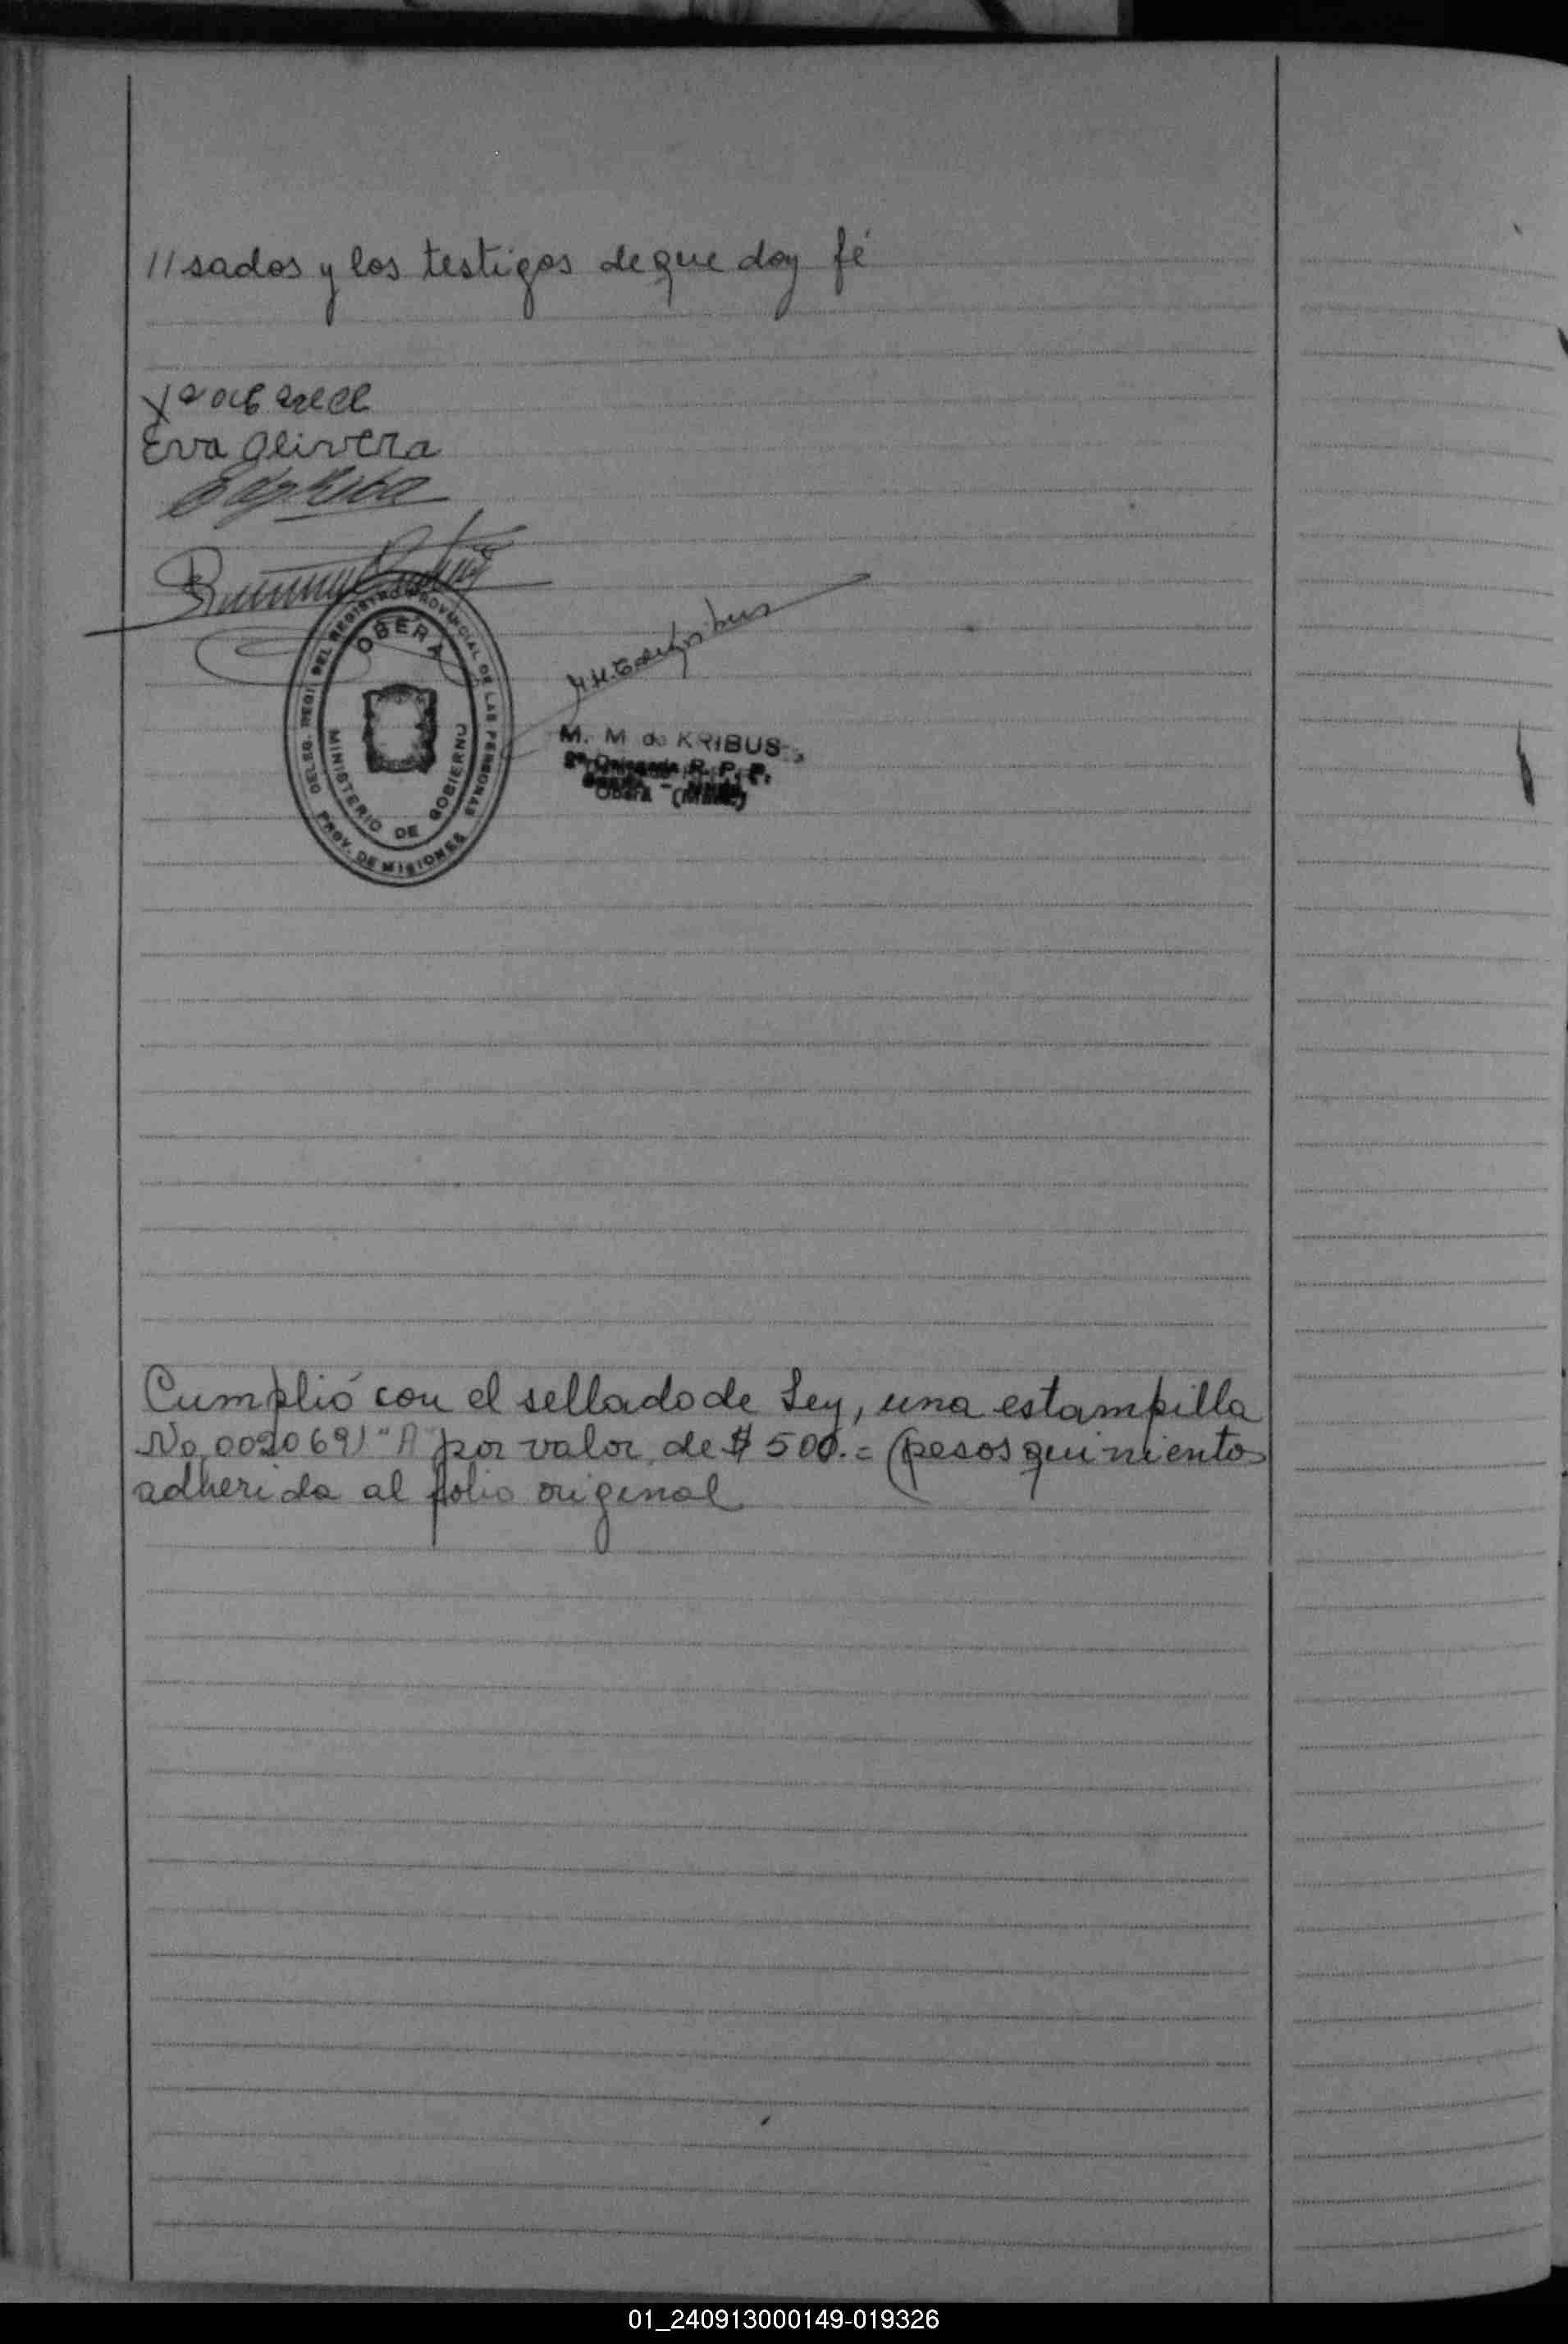 //sados y los testigos de que doy fé
Eva Olivera
DELEG. REGI DEL REGISTRO PROVINCIAL DE LAS PERSONAS
OBERA
MINISTERIO DE GOBIERNO
PROV. DE MISIONES
M. M de KRIBUS
R. P. P.
Oberá (Mnes.)
Cumplió con el sellado de Ley, una estampilla
No 0020691 "A" por valor de $ 500.= (pesos quinientos
adherida al folio original
01_240913000149-019326